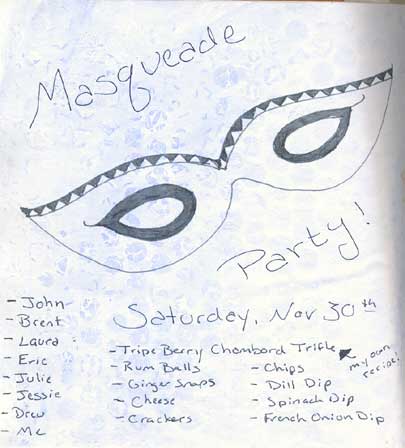 Masqueade
Party!
Saturday, Nov 30th
- John
- Brent
- Laura
- Eric
- Julie
- Jessie
- Drew
- Me
- Tripe Berry Chambord Trifle
my own recipe!
- Rum Balls
- Ginger Snaps
- Cheese
- Crackers
- Chips
- Dill Dip
- Spinach Dip
- French Onion Dip